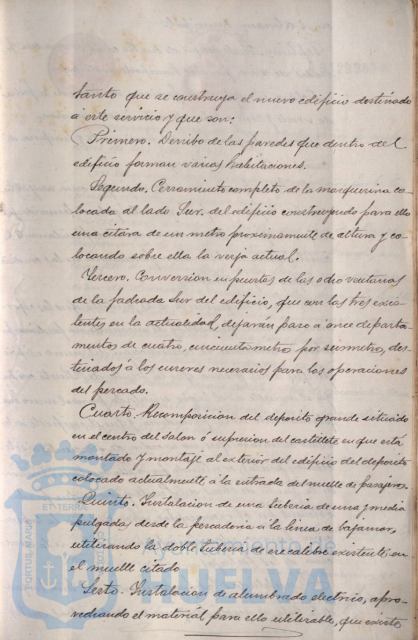 tanto que se construya el nuevo edificio destinado
á este servicio y que son:
Primero. Derribo de las paredes que dentro del
edificio forman varias habitaciones.
Segundo. Cerramiento completo de la marquesina co-
locada al lado Sur del edificio construyendo para ello
una citara de un metro proximamente de altura y co-
locando sobre ella la verja actual.
Tercero. Conversion en puertas de las ocho ventanas
de la fachada Sur del edificio, que con las tres exis-
tentes en la actualidad, dejarán paso á once departa-
mentos de cuatro, cincuenta metro por seis metro, des-
tinados á los enseres necesarios para las operaciones
del pescado.
Cuarto. Recomposicion del deposito grande situado
en el centro del salon ó supresion del castillete en que está
montado y montaje al exterior del edificio del deposito
colocado actualmente á la entrada del muelle de pasajeros.
Quinto. Instalacion de una tuberia de una y media
pulgada, desde la pescaderia á la linea de bajamar,
utilizando la doble tuberia de ese calibre existente en
el muelle citado
Sesto. Instalacion de alumbrado electrico, apro-
vechando el material para ello utilizable, que existe
PORTUS MARIS
ET TERRÆ
Ayuntamiento de
HUELVA